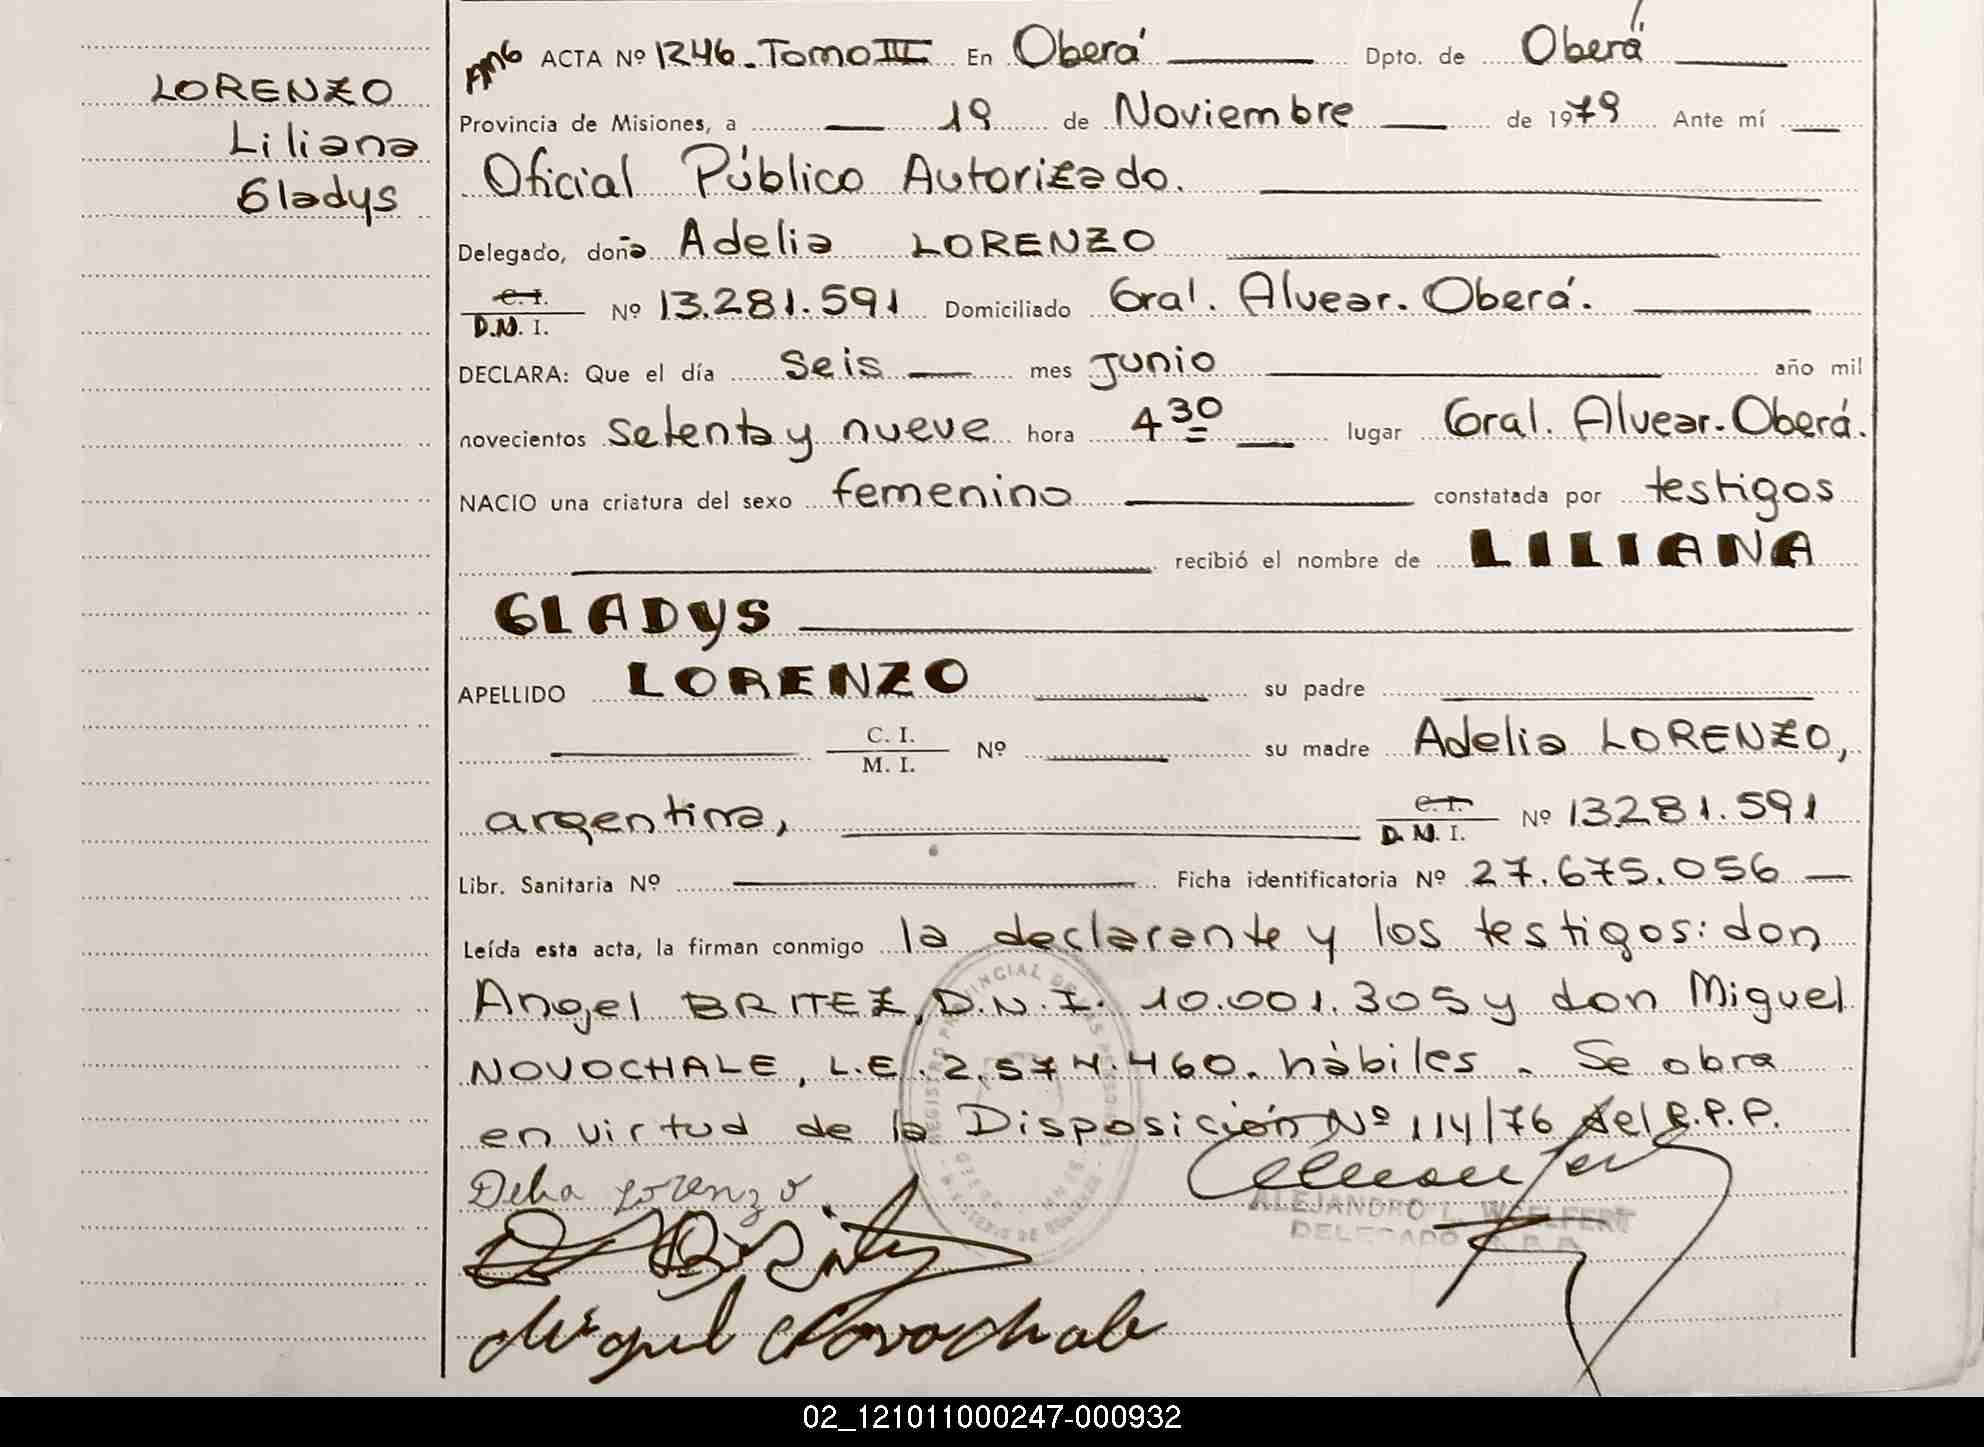 LORENZO
Liliana
Gladys
ACTA Nº 1246. Tomo III En Oberá Dpto. de Oberá
Provincia de Misiones, a 19 de Noviembre de 1979 Ante mí
Oficial Público Autorizado.
Delegado, doña Adelia LORENZO
C. I.
D.N. I. Nº 13.281.591 Domiciliado Gral. Alvear. Oberá.
DECLARA: Que el día seis mes junio año mil
novecientos setenta y nueve hora 4 30 lugar Gral. Alvear. Oberá.
NACIO una criatura del sexo femenino constatada por testigos
recibió el nombre de LILIANA
GLADYS
APELLIDO LORENZO su padre
C. I.
M. I. Nº su madre Adelia LORENZO,
argentina, C. I.
D.N. I. Nº 13281.591
Libr. Sanitaria Nº Ficha identificatoria Nº 27.675.056
Leída esta acta, la firman conmigo la declarante y los testigos: don
Angel BRITEZ, D.N.I. 10.001.305 y don Miguel
NOVOCHALE, L.E. 2.574.460. hábiles. Se obra
en virtud de la Disposición Nº 114/76 del R.P.P.
Delia Lorenzo
ALEJANDRO L. WOELFERT
DELEGADO R. P. P.
Miguel Novochale
02_121011000247-000932